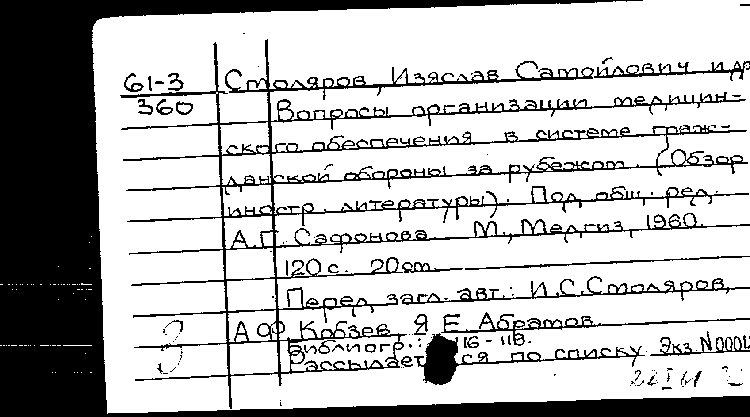 61-3 Столяров, Изяслав Самойлович и др
360 Вопросы организации медицин-
ского обеспечения в системе граж-
данской обороны за рубежом. (Обзор
иностр. литературы). Под общ. ред.
А.Г. Сафонова М., Медгиз, 1960.
120 с. 20 см.
Перед загл. авт.: И.С. Столяров,
А Ф Кобзев, Я Е. Абрамов.
Библиогр.: 116-118.
Рассылается по списку Экз N0001
3